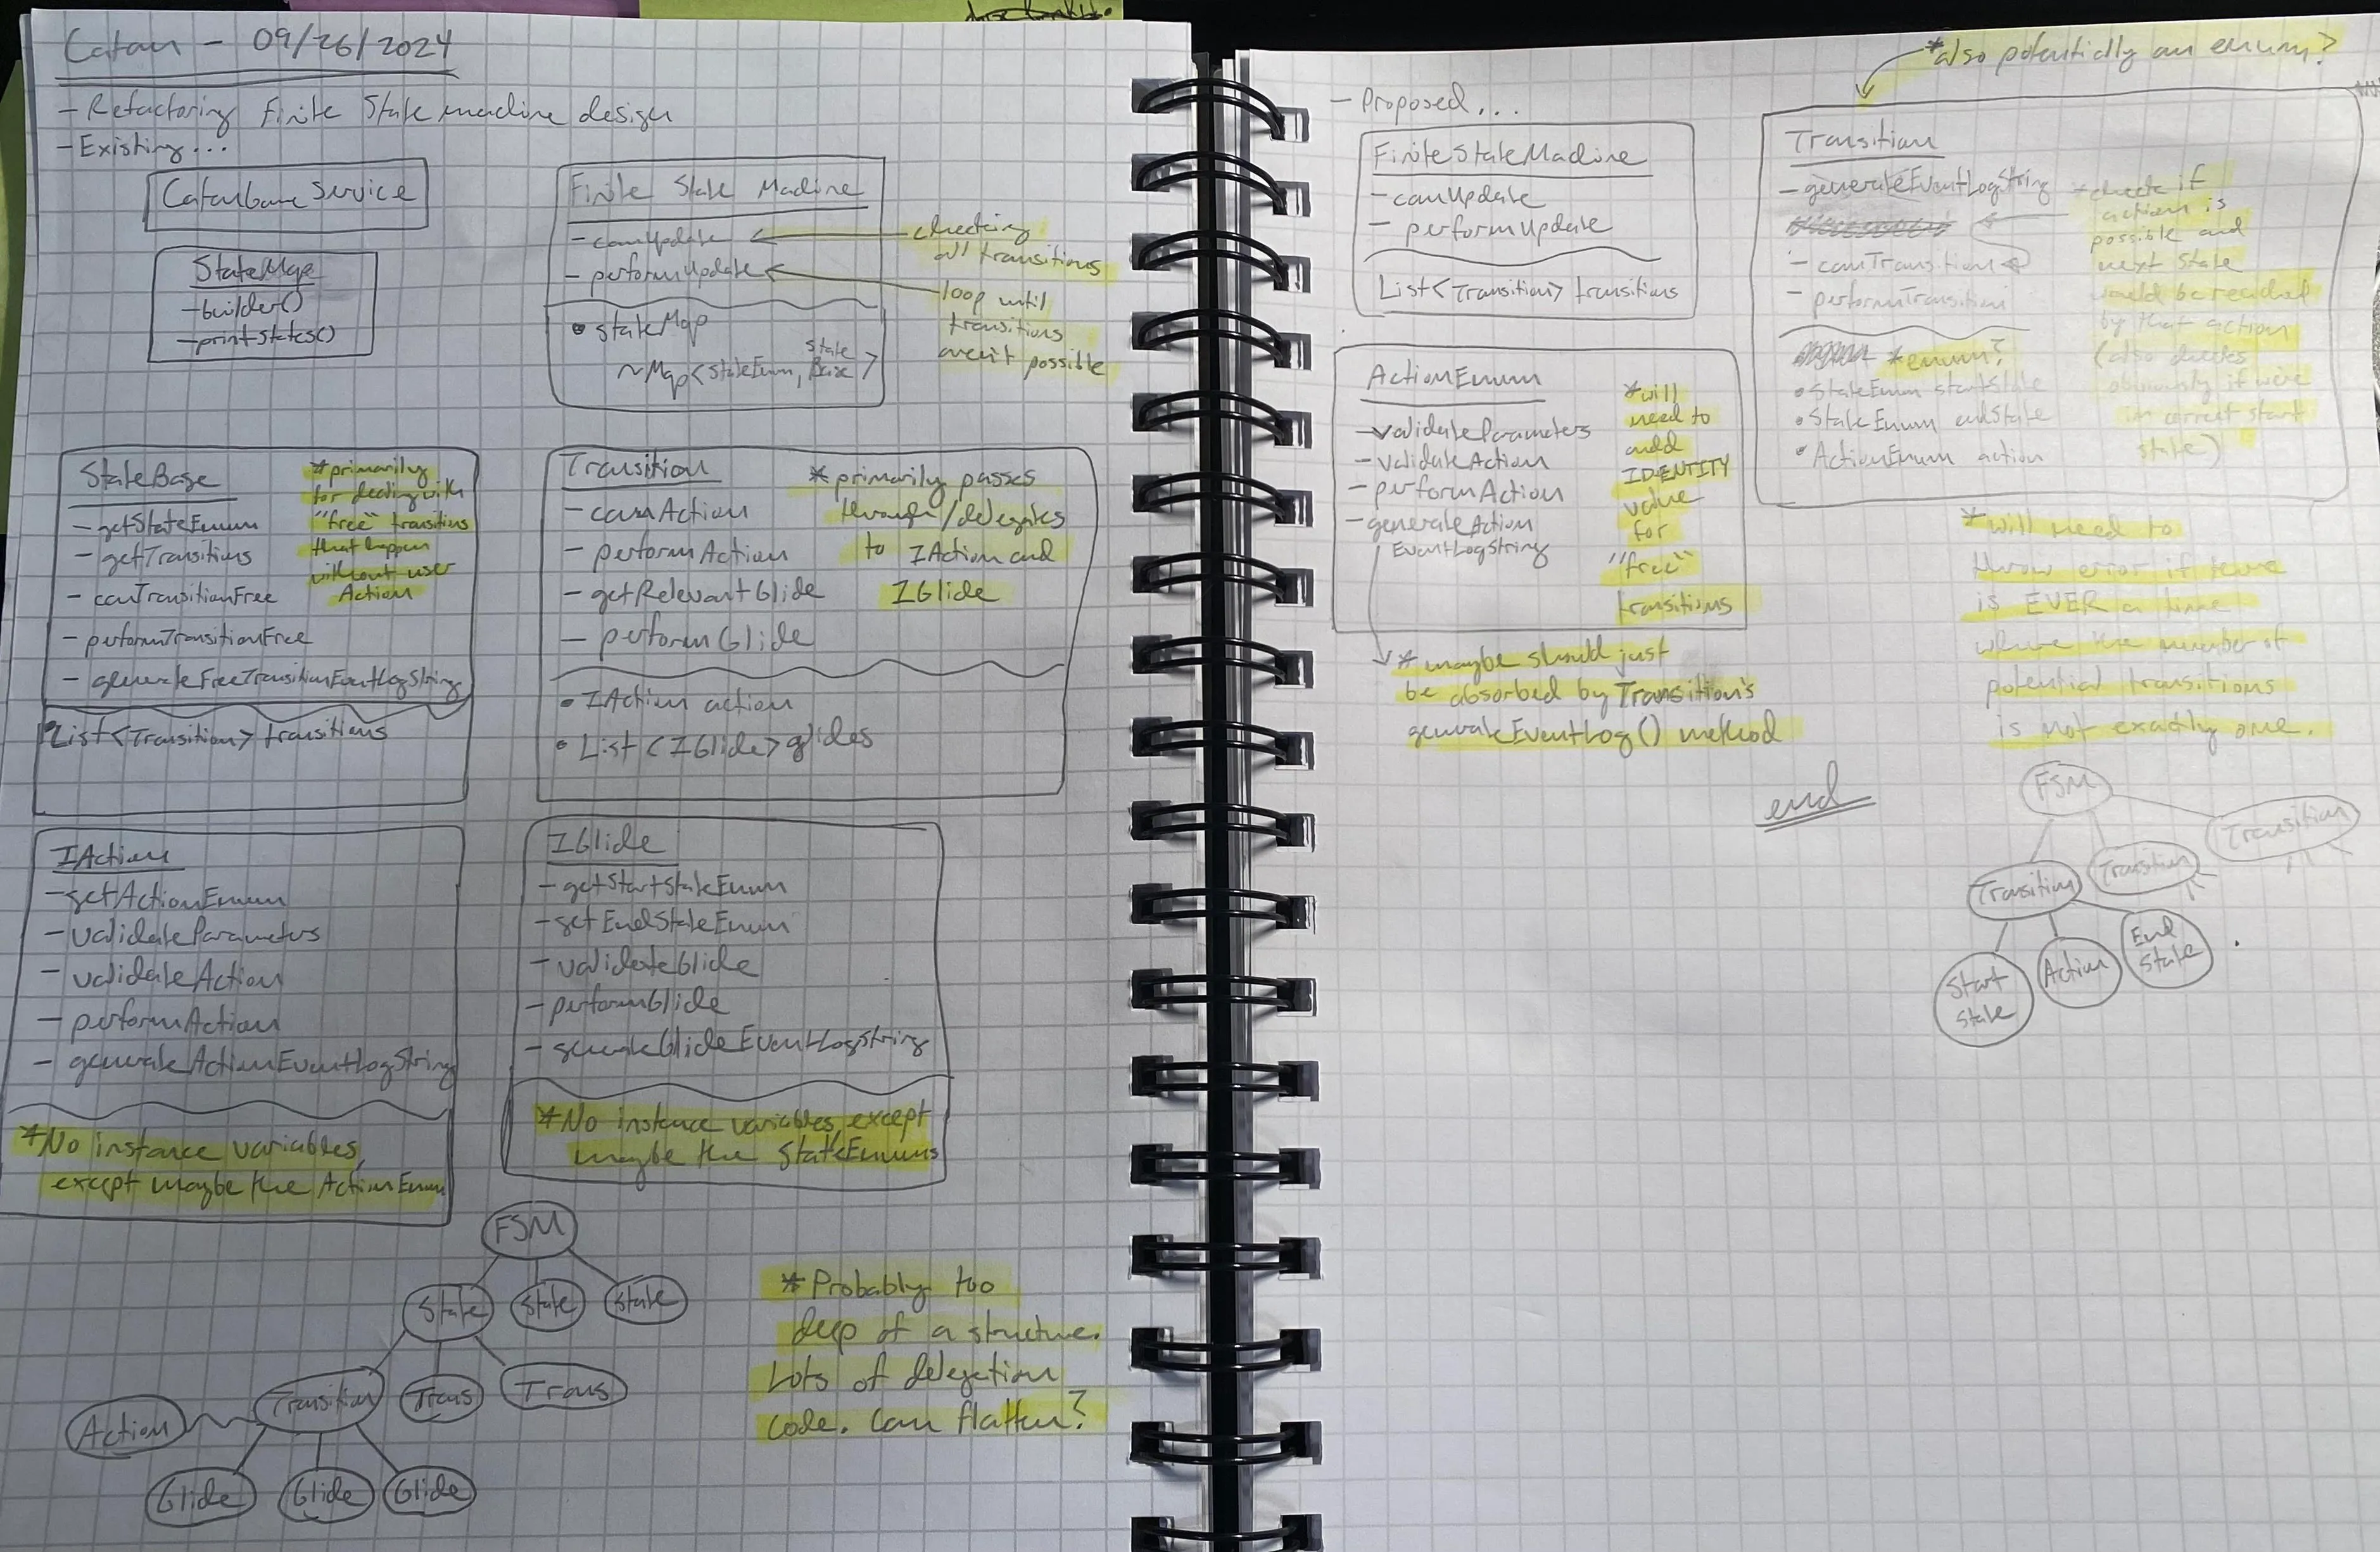 Catan - 09/26/2024
- Refactoring Finite State machine design
- Existing...
CatanGame Service
StateMap
- builder()
- printStates()
Finite State Machine
- canUpdate
- performUpdate
• StateMap
~ Map<StateEnum, State Base>
checking
all transitions
loop until
transitions
aren't possible
StateBase
- getStateEnum
- getTransitions
- canTransitionFree
- performTransitionFree
- generateFreeTransitionEventLogString
• List<Transition> transitions
* primarily
for dealing with
"free" transitions
that happen
without user
Action
Transition
- canAction
- performAction
- getRelevantGlide
- performGlide
• IAction action
• List<IGlide> glides
* primarily passes
through/delegates
to IAction and
IGlide
IAction
- getActionEnum
- validateParameters
- validateAction
- performAction
- generateActionEventLogString
* No instance variables,
except maybe the ActionEnum
IGlide
- getStartStateEnum
- getEndStateEnum
- validateGlide
- performGlide
- generateGlideEventLogString
* No instance variables, except
maybe the StateEnums
FSM
State State State
Transition Trans Trans
Action
Glide Glide Glide
* Probably too
deep of a structure.
Lots of delegation
code. Can flatten?
- Proposed...
FiniteStateMachine
- canUpdate
- performUpdate
List<Transition> transitions
ActionEnum
- validateParameters
- validateAction
- performAction
- generateAction
EventLogString
* will
need to
add
IDENTITY
value
for
"free"
transitions
* maybe should just
be absorbed by Transition's
generateEventLog() method
* also potentially an enum?
Transition
- generateEventLogString
- canTransition
- performTransition
* enum?
• StateEnum startState
• StateEnum endState
• ActionEnum action
* check if
action is
possible and
next state
would be reached
by that action
(also checks
obviously if we're
in correct start
state)
* will need to
throw error if there
is EVER a time
where the number of
potential transitions
is not exactly one.
end
FSM
Transition Transition Transition
Start State
Action
End State